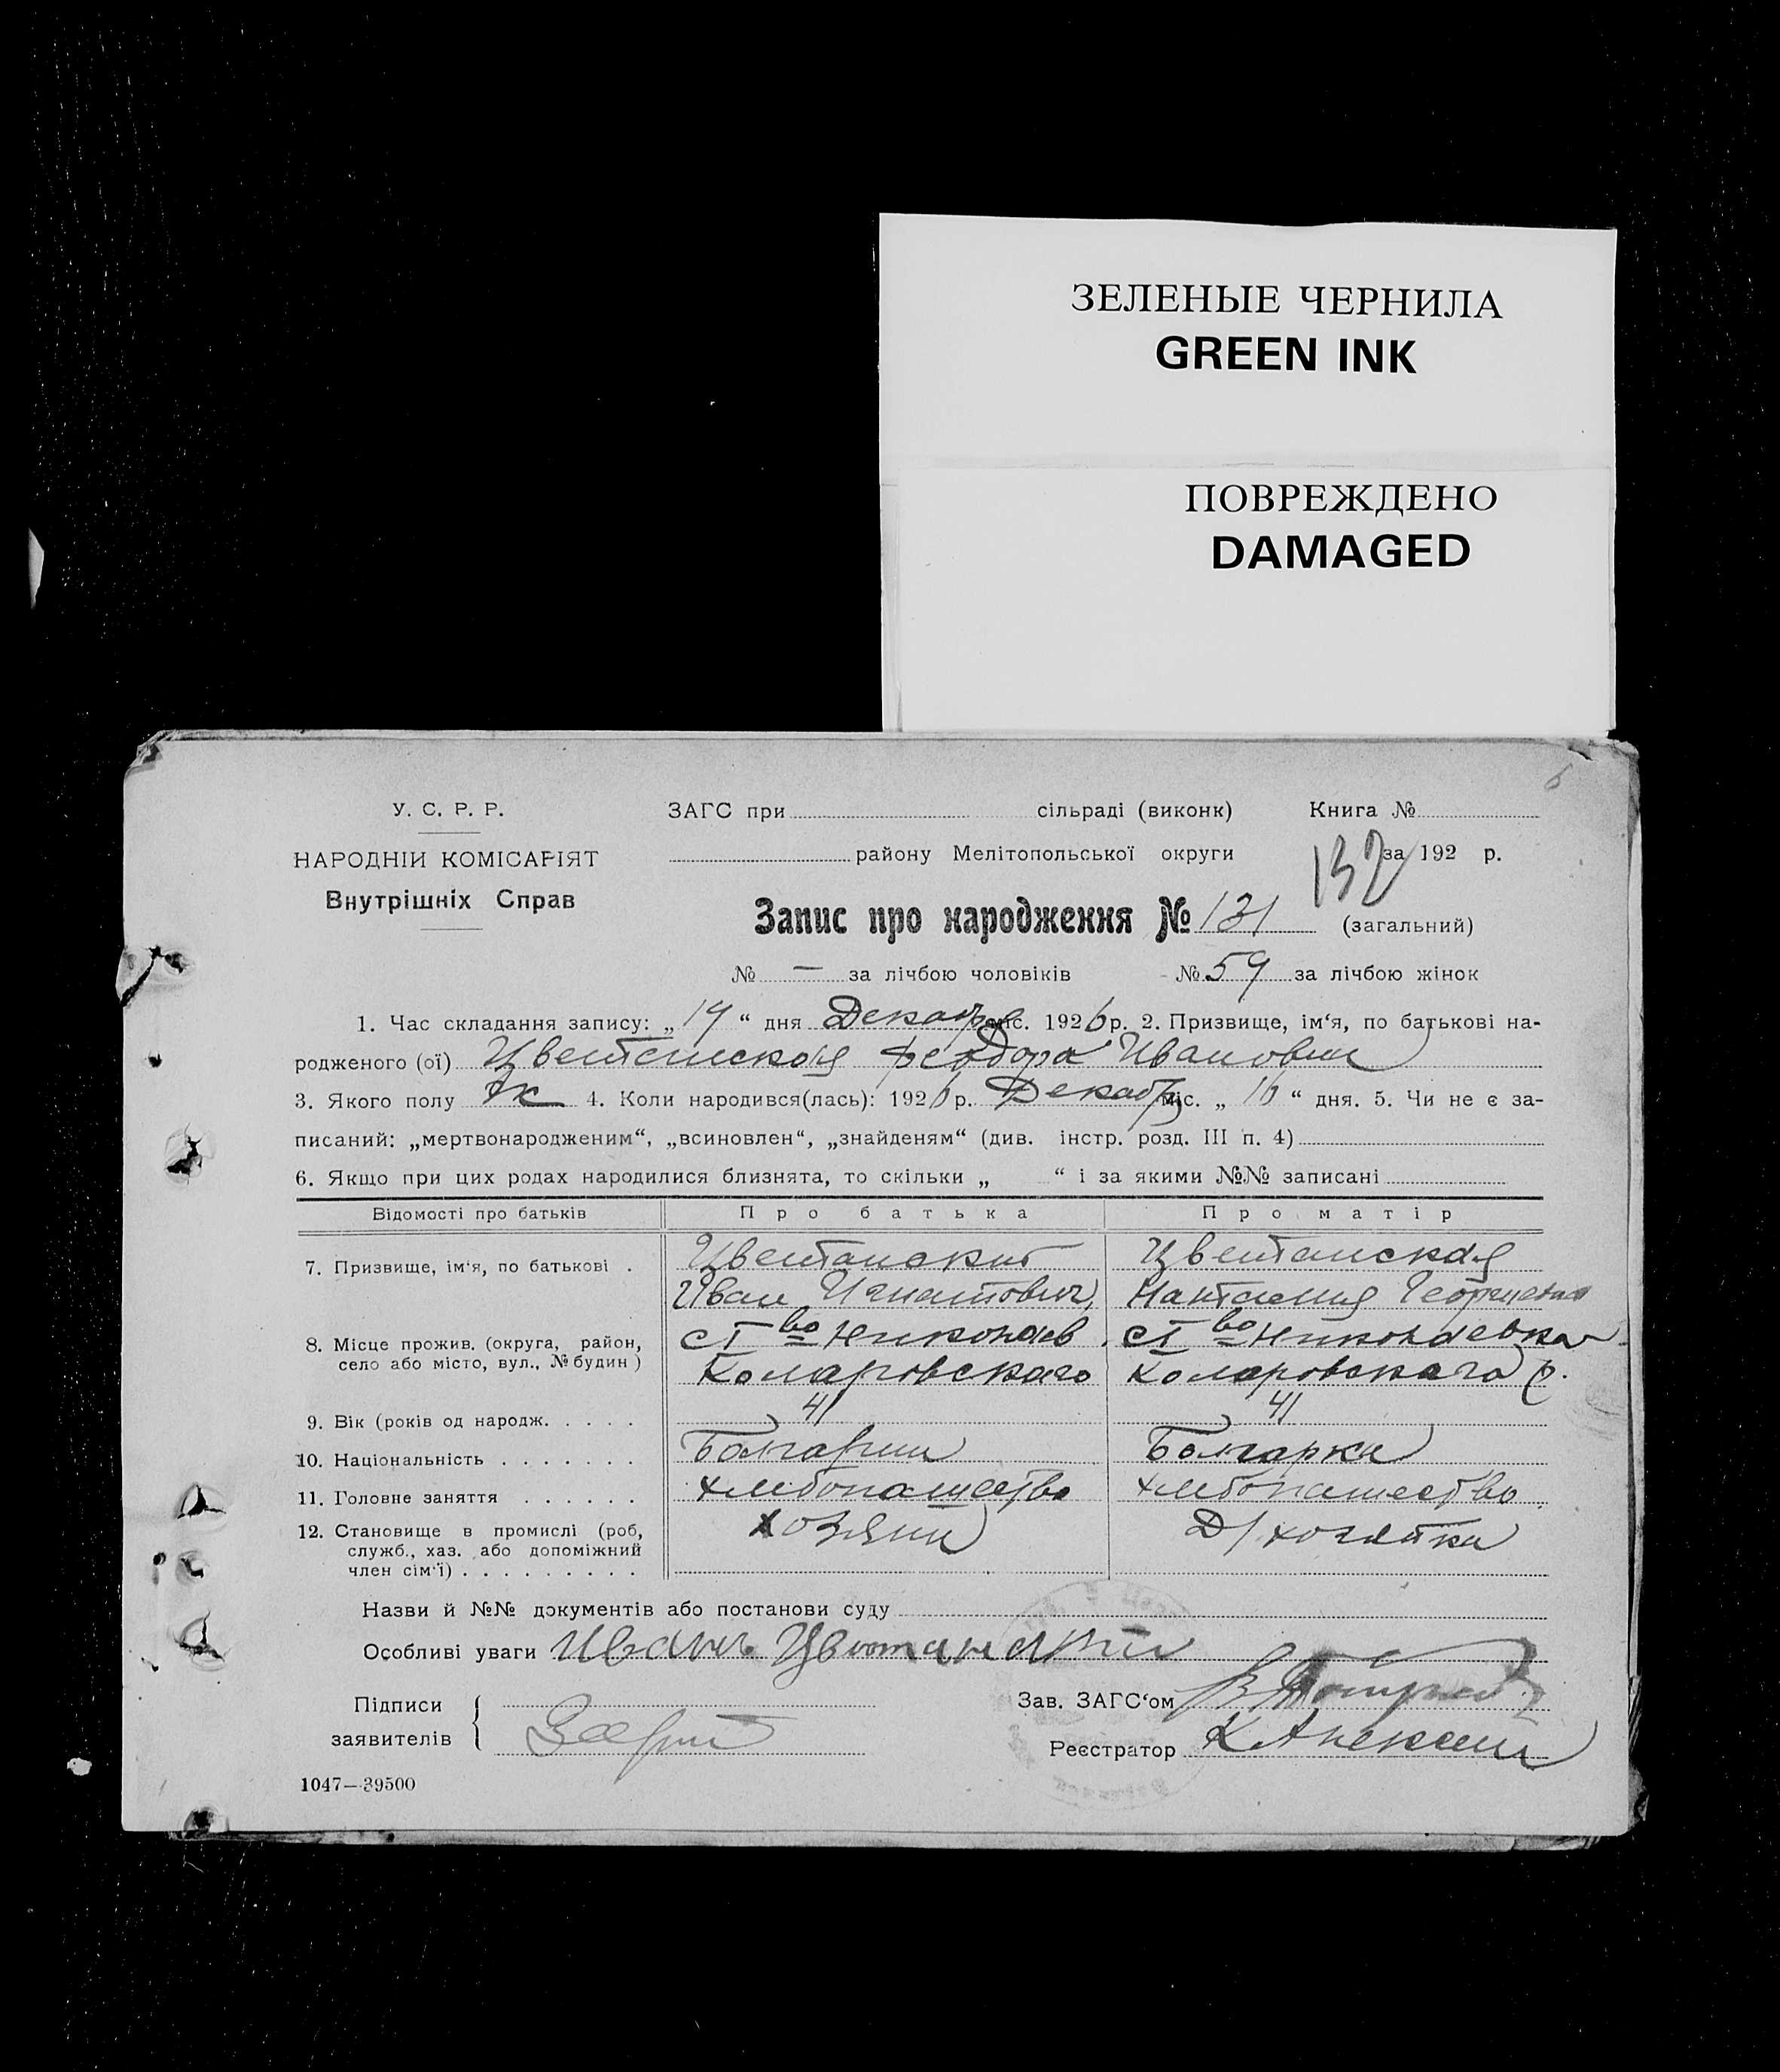 ЗЕЛЕНЫЕ ЧЕРНИЛА
GREEN INK
ПОВРЕЖДЕНО
DAMAGED
У. С. Р. Р.
НАРОДНІЙ КОМІСАРІЯТ
Внутрішніх Справ
ЗАГС при сільраді (виконк) Книга №
району Мелітопольської округи за 192 р.
132
Запис про народження № 131 (загальний)
№ — за лічбою чоловіків № 59 за лічбою жінок
1. Час складання запису: „19“ дня Декабря міс. 1926 р. 2. Призвище, ім‘я, по батькові на-
родженого (ої) Цветанская Феодора Ивановн
3. Якого полу ж 4. Коли народився(лась): 1926 р. Декабря міс. „16“ дня. 5. Чи не є за-
писаний: „мертвонародженим“, „всиновлен“, „знайденям“ (див. інстр. розд. III п. 4)
6. Якщо при цих родах народилися близнята, то скільки „ “ і за якими №№ записані
Відомості про батьків Про батька Про матір
7. Призвище, ім‘я, по батькові . Цветанский Цветанская
Иван Игнатович
8. Місце прожив. (округа, район, ст во Николаев ст во Николаевка
село або місто, вул., № будин) Коларовского Коларовского р.
9. Вік (років од народж. . . . . 41 41
10. Національність . . . . . . . Болгарин Болгарка
11. Головне заняття . . . . . . хлебопашество хлебопашество
12. Становище в промислі (роб, хозяин Д/хозяйка
служб., хаз. або допоміжний
член сім‘ї) . . . . . . . . .
Назви й №№ документів або постанови суду
Особливі уваги Иванъ Цветанский
Підписи
заявителів
Зав. ЗАГС‘ом
Реєстратор
1047—39500